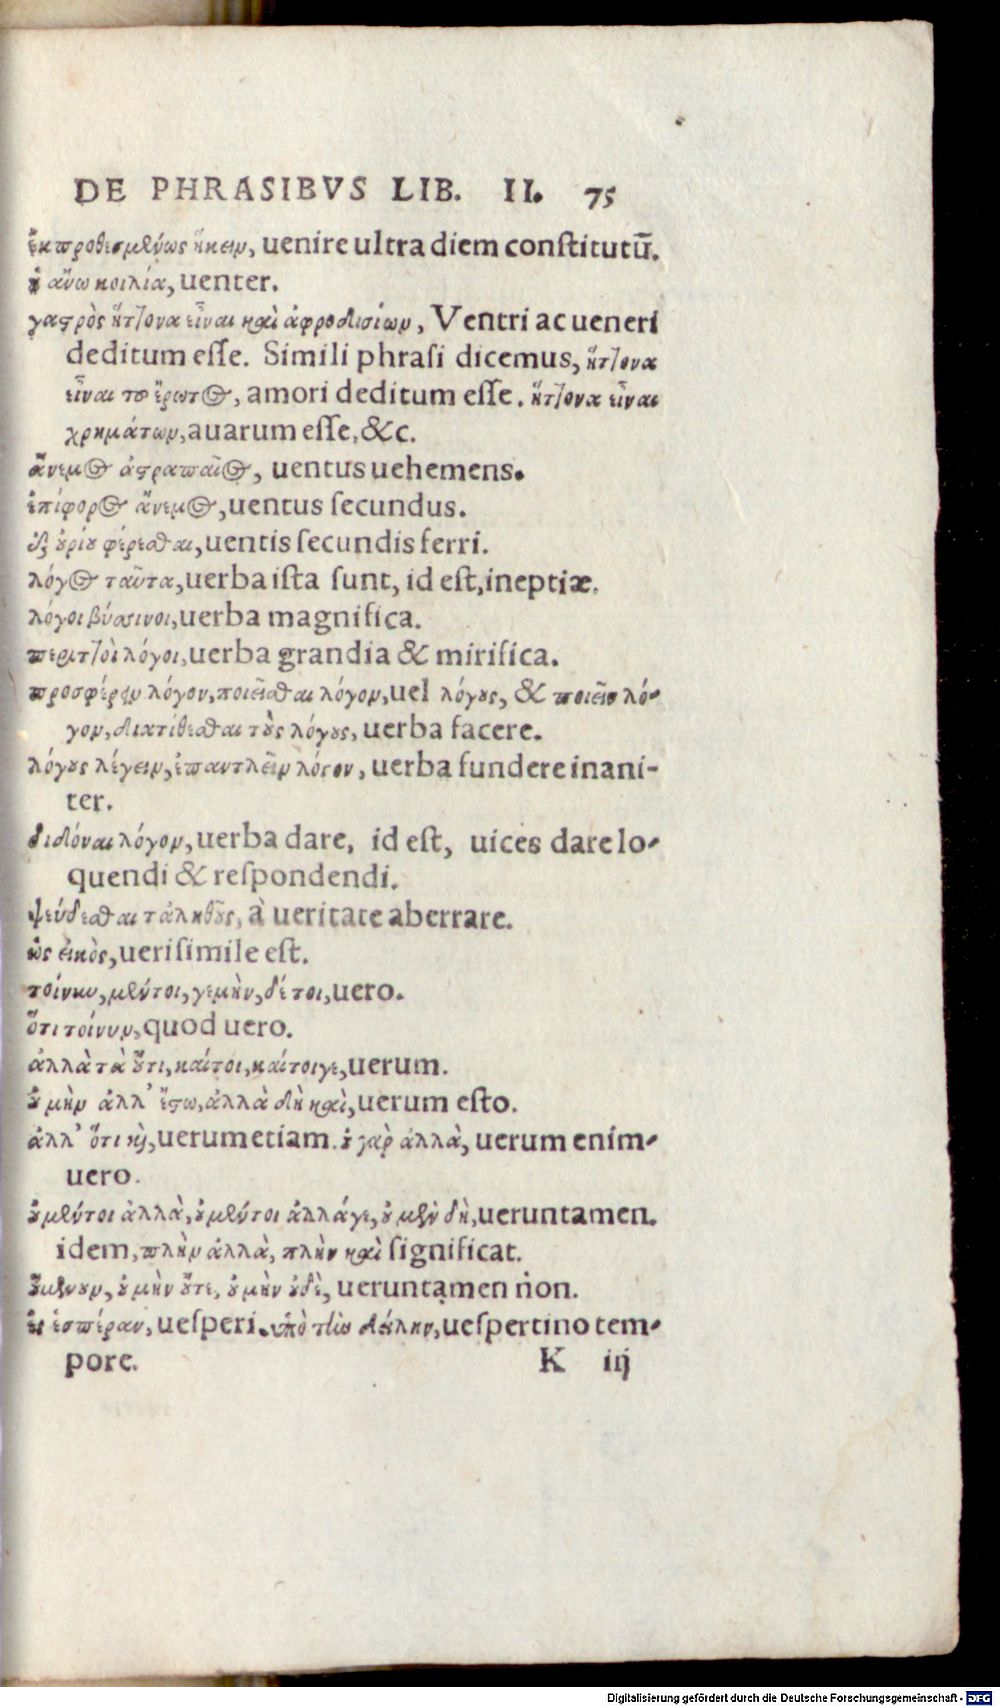 DE PHRASIBVS LIB. II. 75
ἐκπροθεσμένως ἥκειν, uenire ultra diem constitutū.
ἡ ἄνω κοιλία, uenter.
γαστρὸς ἥττονα εἶναι καὶ ἀφροδισίων, Ventri ac ueneri
deditum esse. Simili phrasi dicemus, ἥττονα
εἶναι τοῦ ἔρωτος, amori deditum esse. ἥττονα εἶναι
χρημάτων, auarum esse, &c.
ἄνεμος ἀστραπαῖος, uentus uehemens.
ἐπίφορος ἄνεμος, uentus secundus.
ἐξ οὐρίου φέρεσθαι, uentis secundis ferri.
λόγος ταῦτα, uerba ista sunt, id est, ineptiæ.
λόγοι βύσσινοι, uerba magnifica.
περιττοὶ λόγοι, uerba grandia & mirifica.
προσφέρειν λόγον, ποιεῖσθαι λόγον, uel λόγους, & ποιεῖν λό-
γον, διατίθεσθαι τοὺς λόγους, uerba facere.
λόγους λέγειν, ἐπαντλεῖν λόγον, uerba fundere inani-
ter.
διδόναι λόγον, uerba dare, id est, uices dare lo-
quendi & respondendi.
ψεύδεσθαι τἀληθοῦς, à ueritate aberrare.
ὡς εἰκὸς, uerisimile est.
τοίνυν, μέντοι, γεμὴν, δέ τοι, uero.
ὅτι τοίνυν, quod uero.
ἀλλὰ τὰ ὅτι, καίτοι, καίτοιγε, uerum.
οὐ μὴν ἀλλ' ἔστω, ἀλλὰ δὴ καὶ, uerum esto.
ἀλλ' ὅτι καὶ, uerumetiam. οὐ γὰρ ἀλλὰ, uerum enim-
uero.
οὐ μέντοι ἀλλὰ, οὐ μέντοι ἀλλάγε, οὐ μὲν δὴ, ueruntamen.
idem, πλὴν ἀλλὰ, πλὴν καὶ significat.
οὔμενουν, οὐ μὴν οὔτε, οὐ μὴν οὐδὲ, ueruntamen non.
εἰς ἑσπέραν, uesperi. ὑπὸ τὴν δείλην, uespertino tem-
pore. K iij
Digitalisierung gefördert durch die Deutsche Forschungsgemeinschaft - DFG